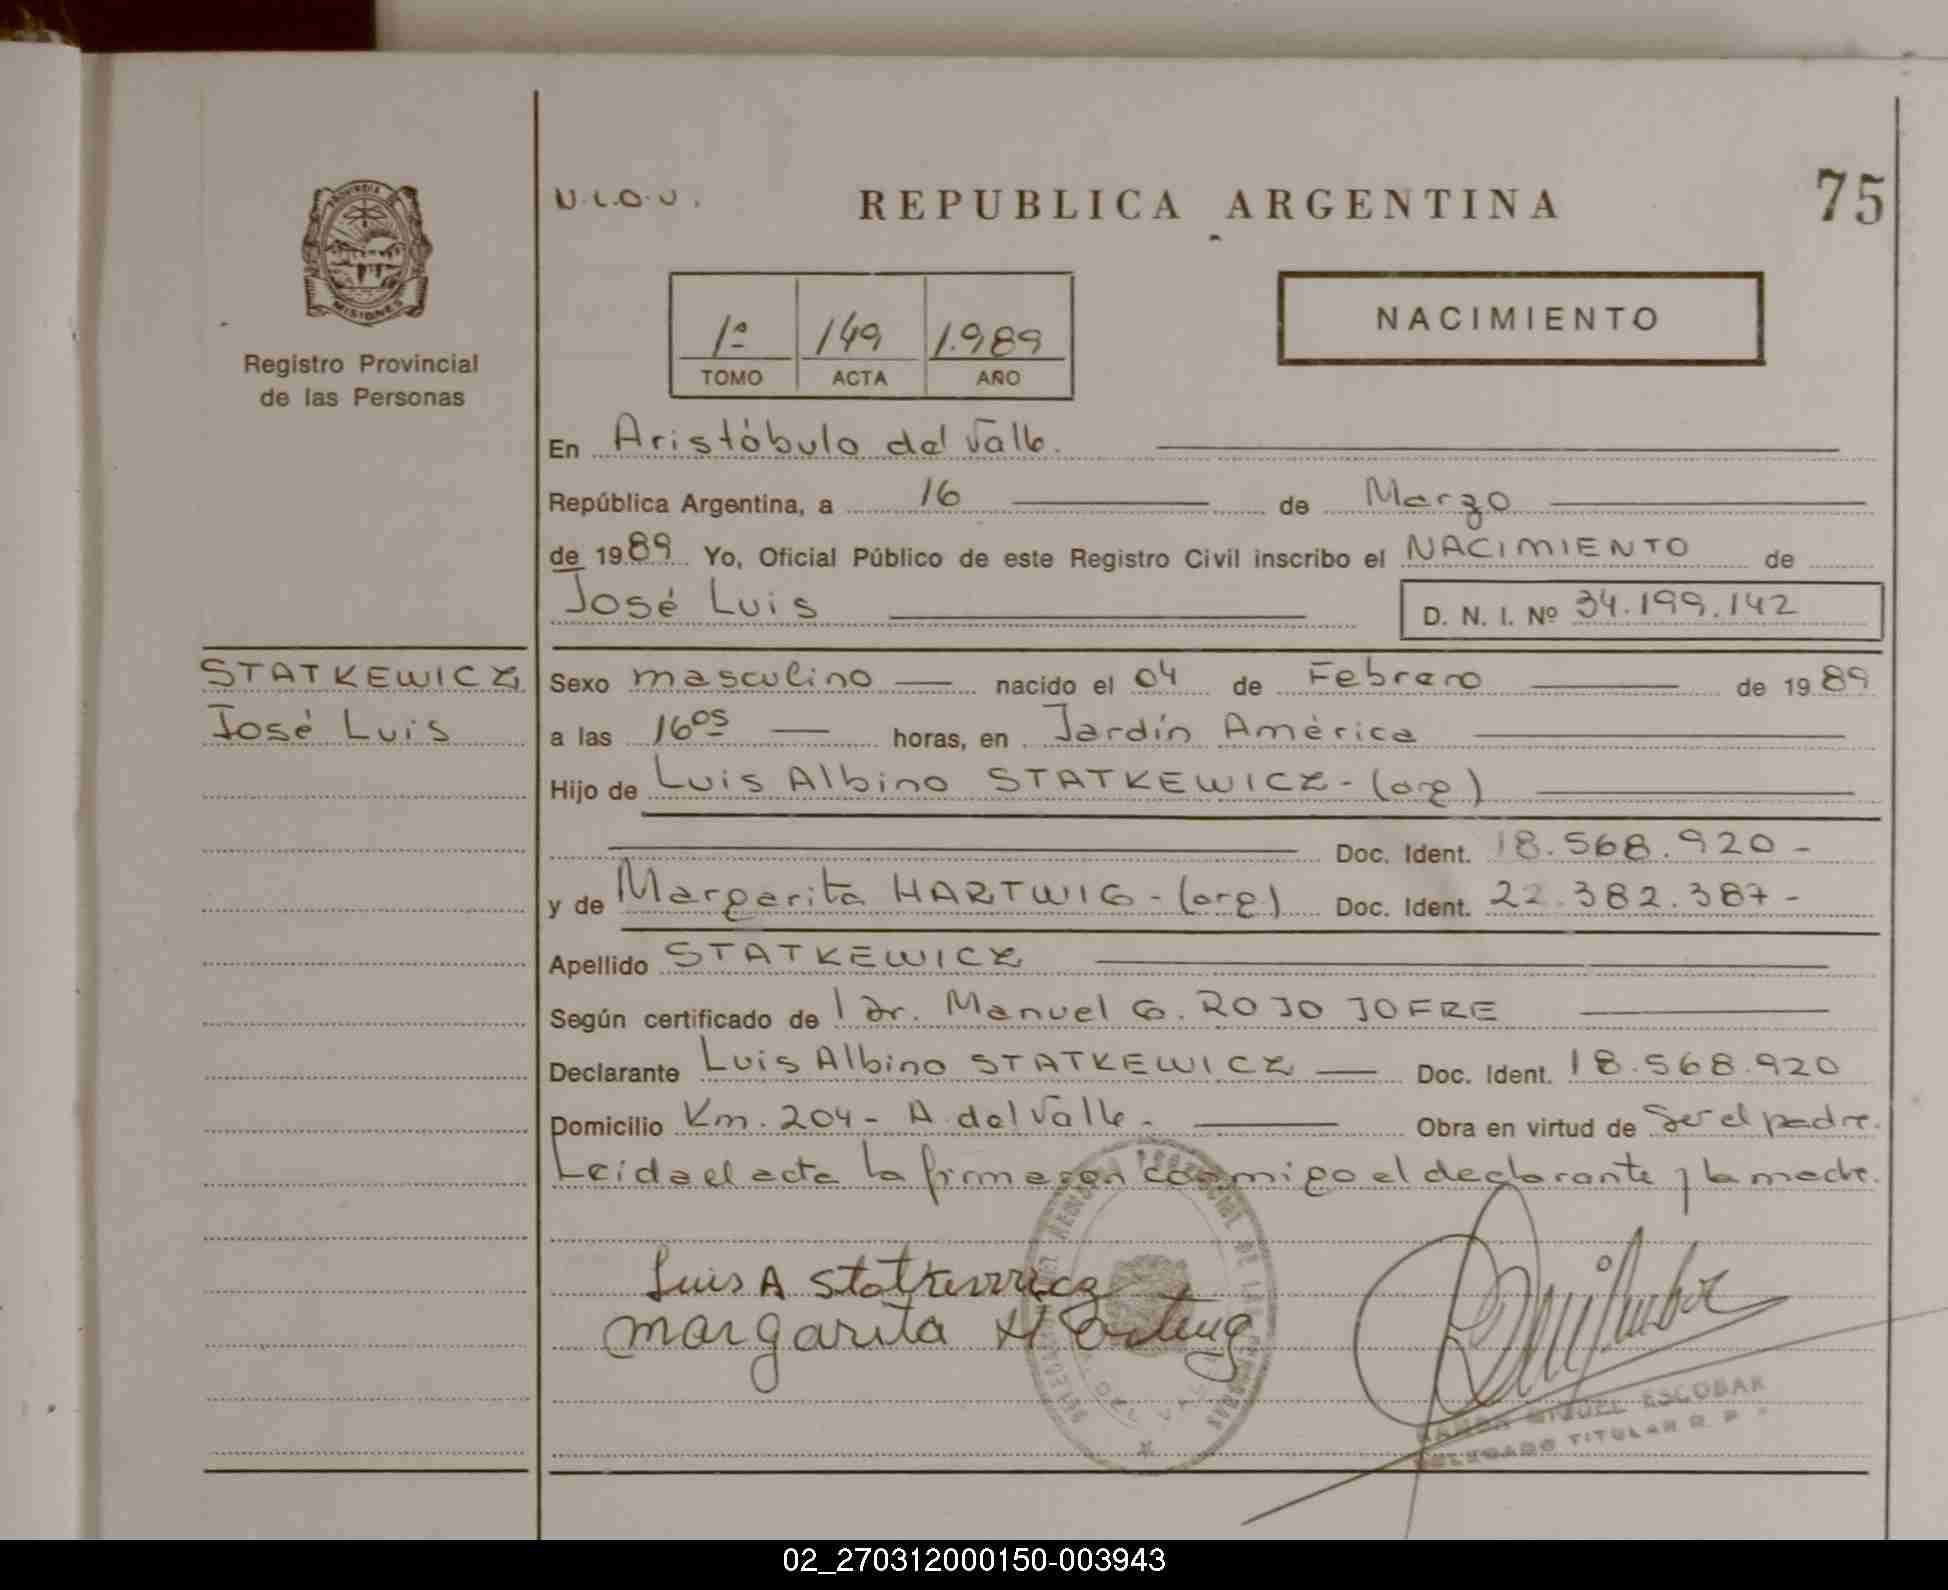 PROVINCIA
MISIONES
Registro Provincial
de las Personas
STATKEWICZ
José Luis
REPUBLICA ARGENTINA
75
1ª 149 1.989
TOMO ACTA AÑO
NACIMIENTO
En Aristóbulo del Valle.
República Argentina, a 16 de Marzo
de 1989 Yo, Oficial Público de este Registro Civil inscribo el NACIMIENTO de
José Luis D. N. I. Nº 34.199.142
Sexo masculino nacido el 04 de Febrero de 1989
a las 16 05 horas, en Jardín América
Hijo de Luis Albino STATKEWICZ - (arg)
Doc. Ident. 18.568.920 -
y de Margarita HARTWIG - (arg) Doc. Ident. 22.382.387 -
Apellido STATKEWICZ
Según certificado de l Dr. Manuel G. ROJO JOFRE
Declarante Luis Albino STATKEWICZ Doc. Ident. 18.568.920
Domicilio Km. 204 - A. del Valle - Obra en virtud de ser el padre.
Leida el acta la firma con conmigo el declarante y la madre.
Luis A Statkewicz
Margarita Hartwig
MIGUEL ESCOBAR
DELEGADO TITULAR R. P.
02_270312000150-003943